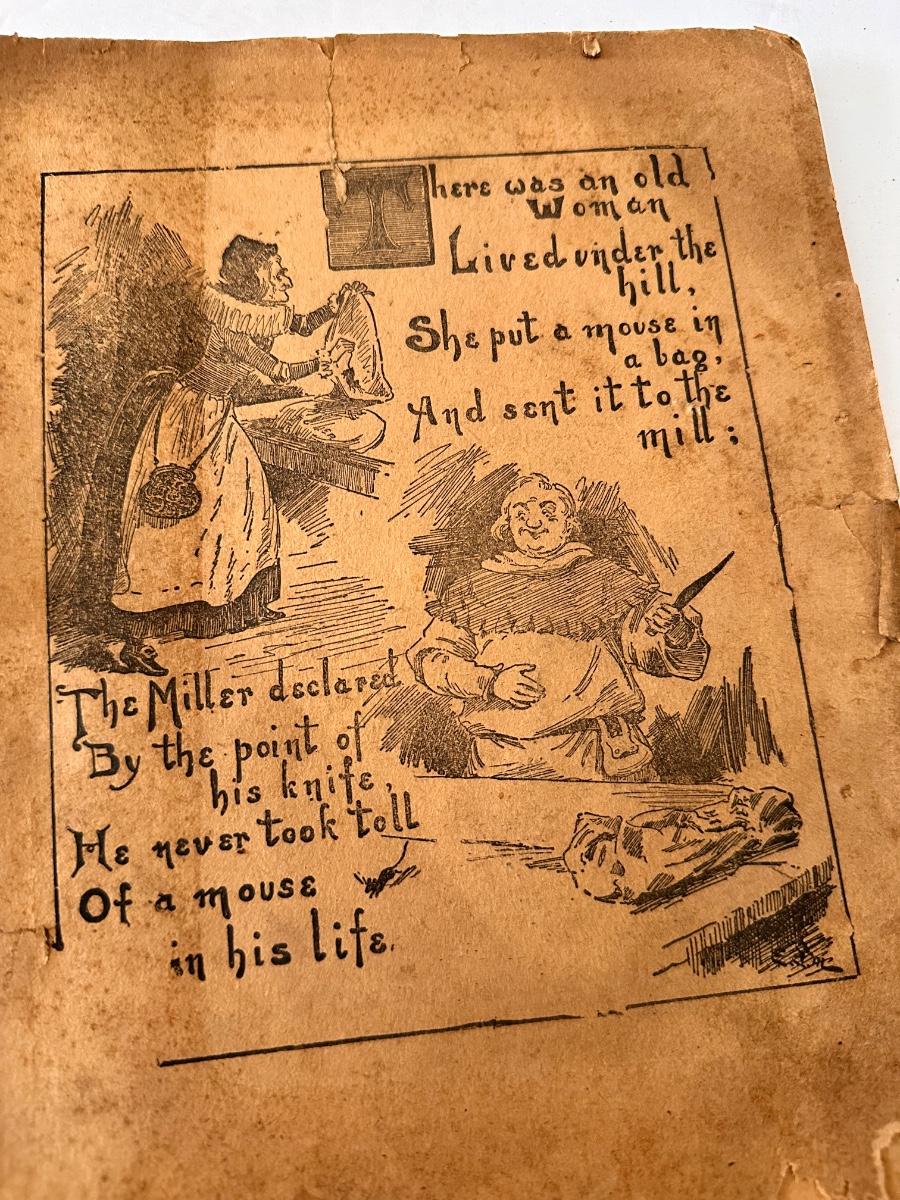 There was an old
Woman
Lived under the
hill,
She put a mouse in
a bag,
And sent it to the
mill;
The Miller declared
By the point of
his knife,
He never took toll
Of a mouse
in his life.